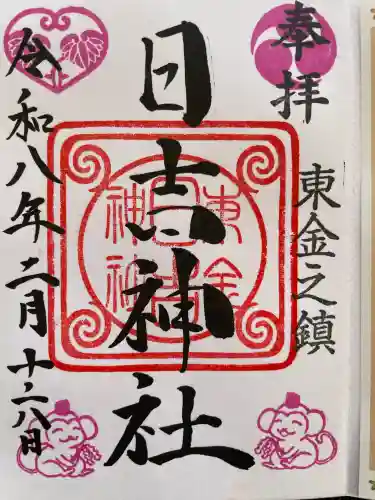 奉拝
東金之鎮
日吉神社
東金
日吉
神社
令和八年二月十八日